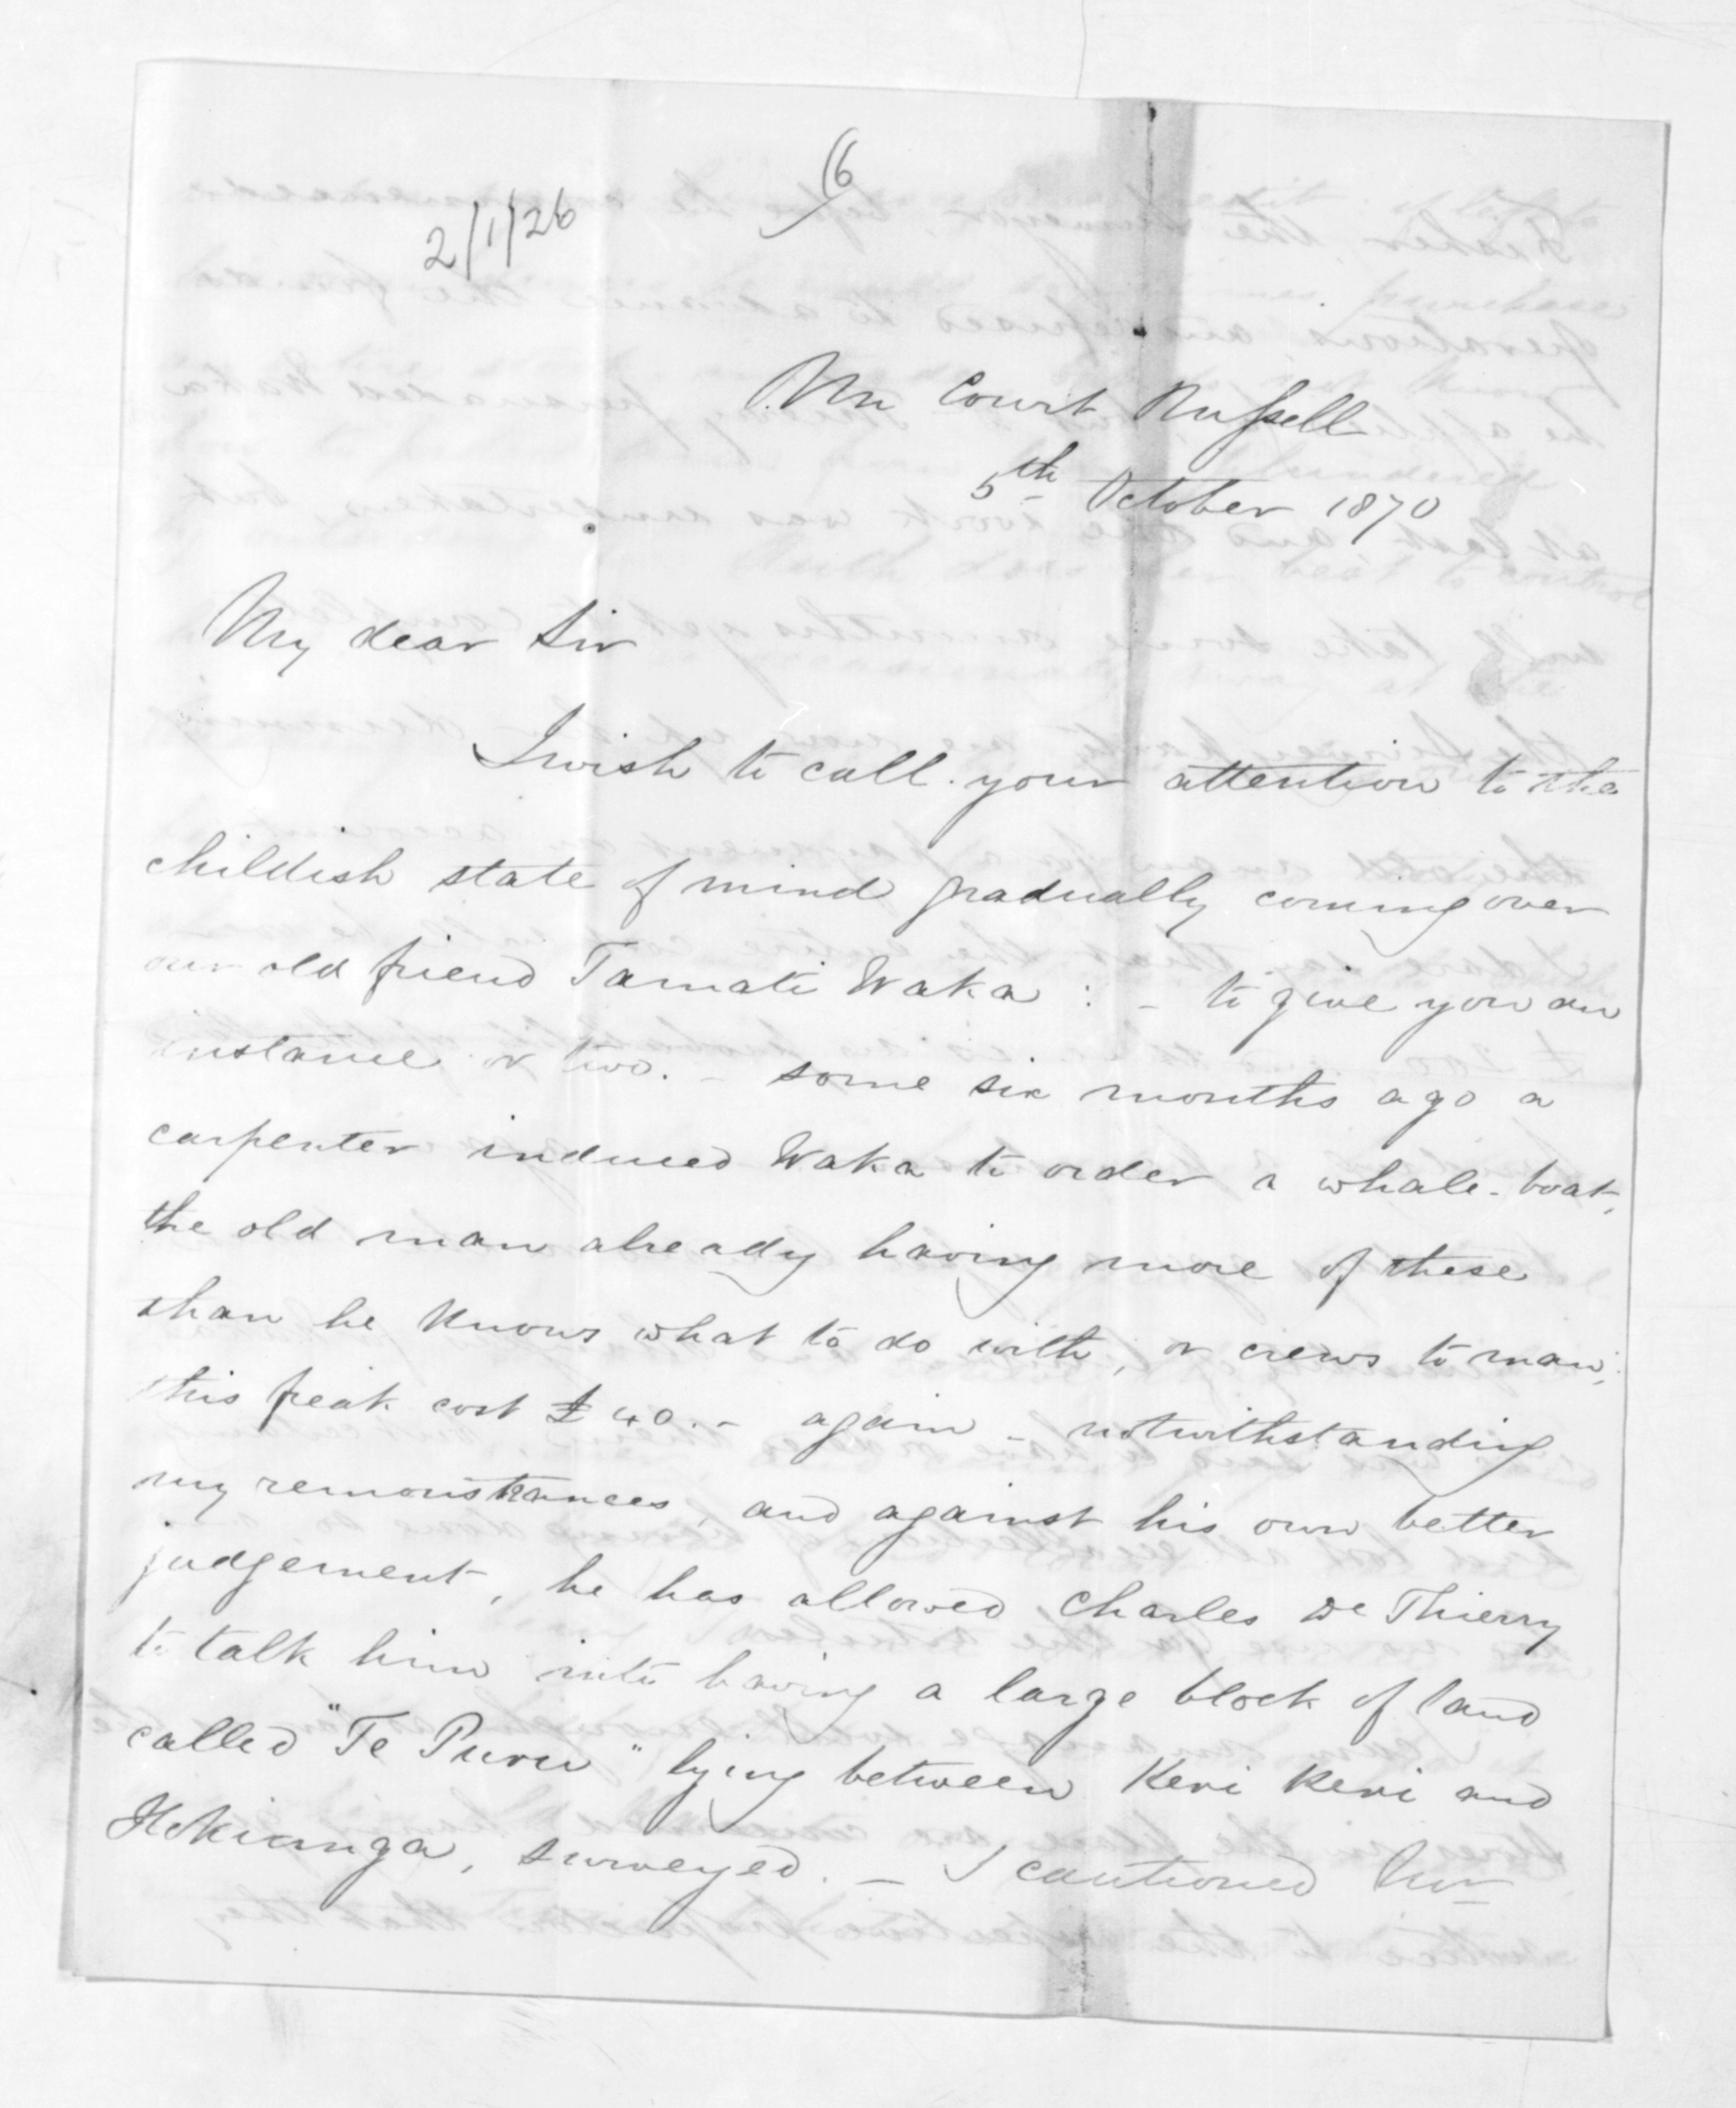 (6
2/1/26
Mr Court Russell
5th October 1870
My dear Sir
I wish to call your attention to the
childish state of mind gradually coming over
our old friend Tamati Waka : - to give you an
instance or two. - some six months ago a
carpenter induced Waka to order a whale-boat,
the old man already having more of these
than he knows what to do with, or crews to man;
this freak cost £40. - again - notwithstanding
my remonstrances, and against his own better
judgement, he has allowed Charles De Thierry
to talk him into having a large block of land
called "Te Puru" lying between Keri Keri and
Hokianga, surveyed. - I cautioned Mr